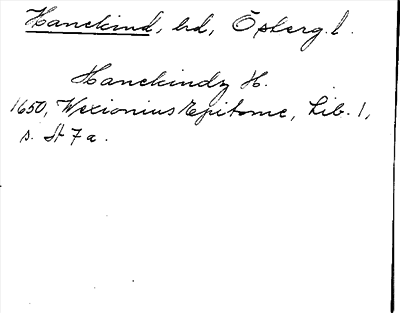 Hanekind, hd, Österg.l.
Hanekindz H.
1650, Wexionius Epitome, Lib. 1,
s. St 7 a.